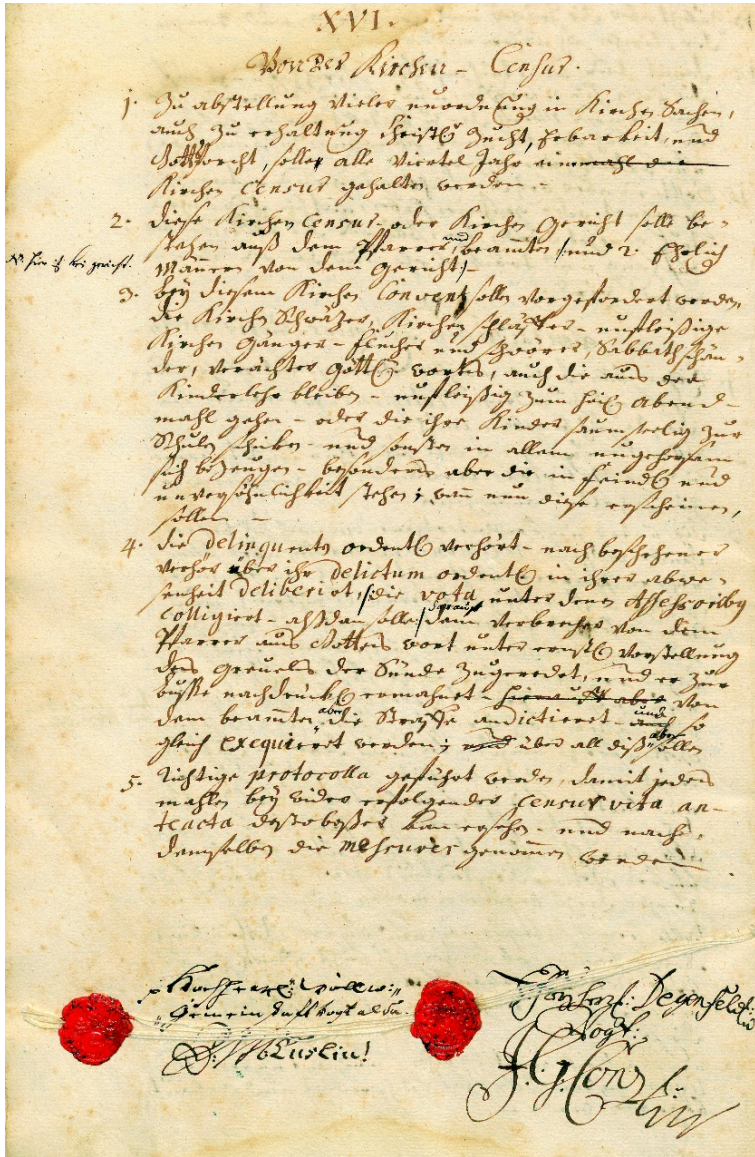 XVI.
Von der Kirchen - Census.
1. Zu abstellung vieler unordnung in Kirchen Sachen,
auch zu erhaltung Christl. Zucht, Erbarkeit, und
Gottsforcht, solle alle Viertel Jahr einmahl die
Kirchen Census gehalten werden -
2. diese Kirchen Census oder Kirchen Gericht solle be-
stehen auß dem Pfarrer, und beammten /: und 2. Ehrlich
Männern von dem Gericht :/
NB. hier ist kein gericht.
3. bey diesem Kirchen Convent sollen vorgefordert werden,
die Kirchen Schwäzer, Kirchen schläffer - unfleißige
Kirchen gänger - flucher und schwörer, Sabbathschän-
der, verächter göttl. worts, auch die aus der
Kinderlehr bleiben - unfleißig zum heil. abend-
mahl gehen - oder die ihre Kinder saumseelig zur
Schulen schiken - und sonsten in allem ungehorsam
sich bezeugen - besonders aber die in feindl. und
unversöhnlichkeit stehen; wann nun diese erscheinen,
sollen -
4. die delinquenten ordentl. verhört - nach beschehener
verhör über ihr delictum ordentl. in ihrer abwe-
senheit deliberirt, die vota unter denen Assessoribus
colligiert - alßdan solle darauf dem verbrecher von dem
Pfarrer aus Gottes wort unter ernstl. vorstellung
des greuels der Sünde zugeredet, und er zur
busse nachdrückl. ermahnet - hierauf aber von
dem beammten aber die Straffe andictieret - und so
gleich exequieret werden; und über all diß aber sollen
5. Richtige protocolla geführt werden, damit jedes
mahlen bey wider erfolgender Census vita an-
teacta desto beßer kan ersehen - und nach
demselben die mesures genommen werden
Gemeinschafftvogt alda.
Degenfeld:
Vogt: